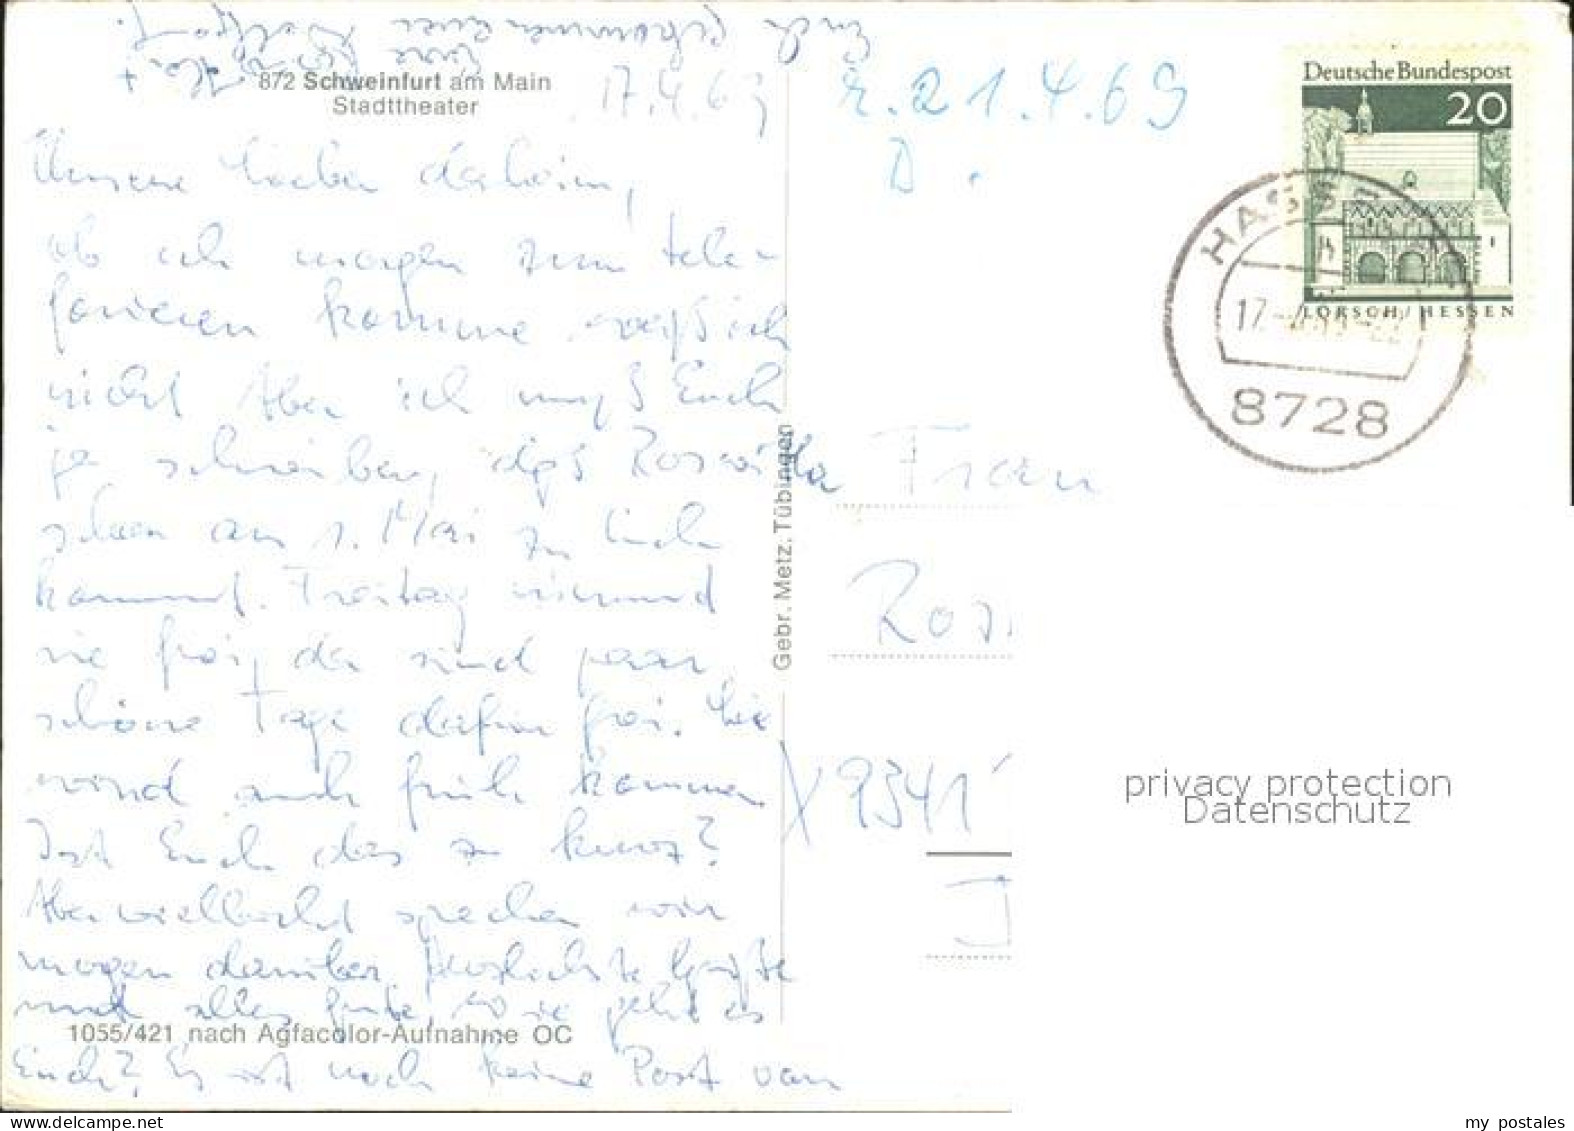 872 Schweinfurt am Main
Stadttheater
17.4.69
Unsere lieben daheim,
ob ich morgen zum tele-
fonieren komme weiß ich
nicht Aber ich muß Euch
ja schreiben, daß Roswitha
schon am 1. Mai zu Euch
kommt. Freitag nimmt
sie frei, da sind paar
schöne Tage dafür frei. Sie
wird auch früh kommen
Ist Euch das zu kurz?
Aber vielleicht sprechen wir
morgen darüber, herzlichste Grüße
und alles gute, wie geht es
Euch? Es ist noch keine Post von
Euch gekommen
1055/421 nach Agfacolor-Aufnahme OC
Gebr. Metz, Tübingen
21.4.69
Deutsche Bundespost
20
LORSCH / HESSEN
HASS
17.
8728
Frau
8341
privacy protection
Datenschutz
my postales